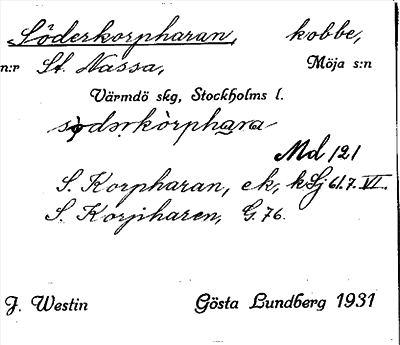 Söderkorpharan, kobbe,
n:r St. Nassa, Möja s:n
Värmdö skg, Stockholms l.
Md 121
S. Korpharan, ek, kSj 61.7. VI.
S. Korpharen, G. 76.
J. Westin Gösta Lundberg 1931